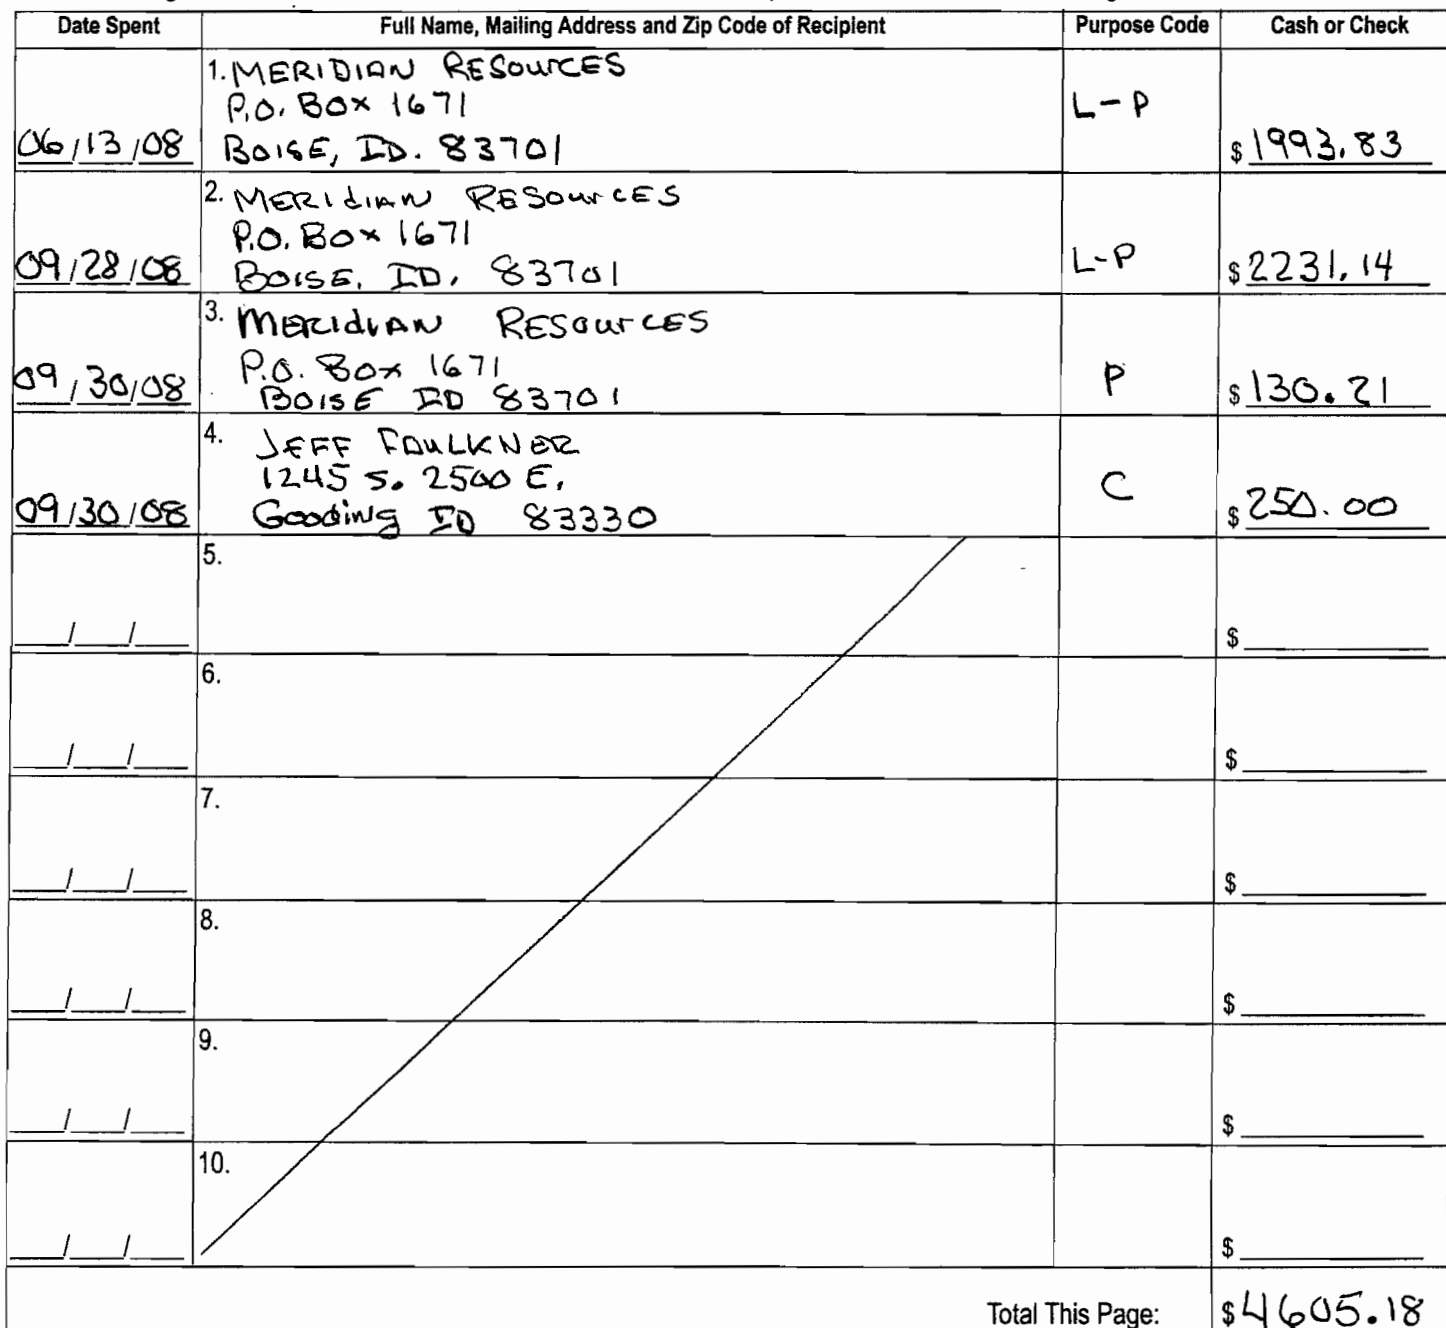 Date Spent Full Name, Mailing Address and Zip Code of Recipient Purpose Code Cash or Check
1. MERIDIAN RESOURCES
P.O. BOX 1671
06/13/08 BOISE, ID. 83701 L-P $1993.83
2. MERIdIAN RESOurCES
P.O. BOX 1671
09/28/08 BOISE, ID. 83701 L-P $2231.14
3. MERIdIAN RESOurCES
P.O. BOX 1671
09/30/08 BOISE ID 83701 P $130.21
4. JEFF FAULKNER
1245 S. 2500 E.
09/30/08 Gooding ID 83330 C $250.00
5.
__/__/__ $
6.
__/__/__ $
7.
__/__/__ $
8.
__/__/__ $
9.
__/__/__ $
10.
__/__/__ $
Total This Page: $4605.18